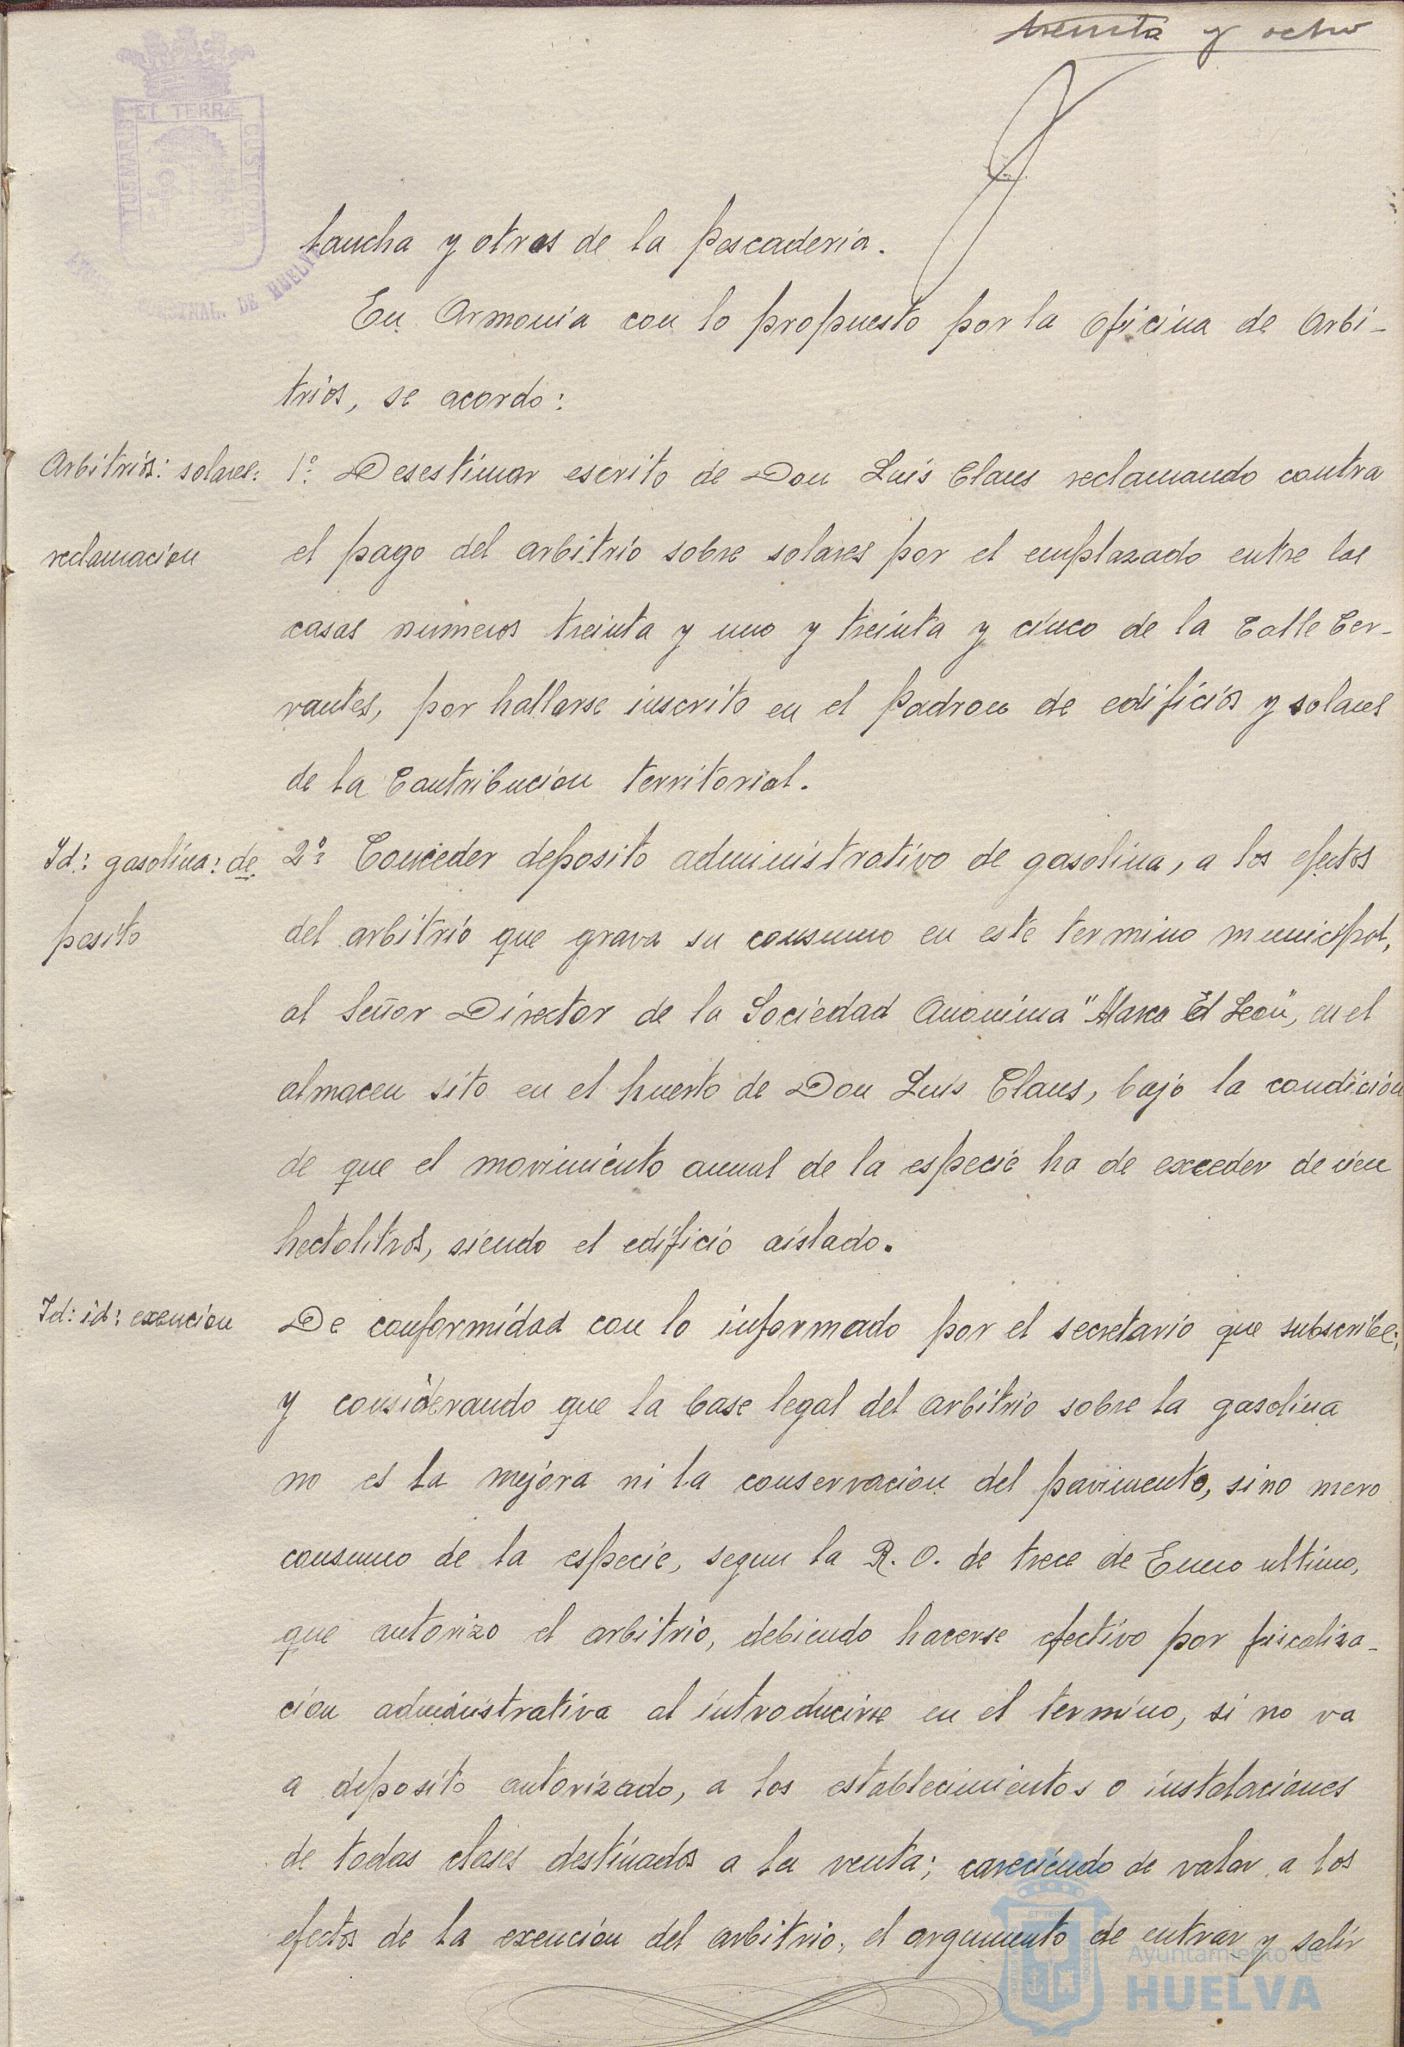 treinta y ocho
ET TERRÆ
CUSTODIA
DE HUELVA
lancha y otros de la Pescaderia.
En Armonia con lo propuesto por la oficina de Arbi-
trios, se acordo:
Arbitrios: solares:
reclamacion
1º: Desestimar escrito de Don Luis Claus reclamando contra
el pago del arbitrio sobre solares por el emplazado entre las
casas numeros treinta y uno y treinta y cinco de la Calle Cer-
vantes, por hallarse inscrito en el Padron de edificios y solares
de la Contribucion territorial.
Id: gasolina: de
posito
2º: Conceder deposito administrativo de gasolina, a los efectos
del arbitrio que grava su consumo en este termino municipal,
al Señor Director de la Sociedad Anonima "Marca El León", en el
almacen sito en el huerto de Don Luis Claus, bajo la condicion
de que el movimiento anual de la especie ha de exceder de cien
hectolitros, siendo el edificio aislado.
Id: id: exencion
De conformidad con lo informado por el secretario que subscribe;
y considerando que la base legal del arbitrio sobre la gasolina
no es la mejora ni la conservacion del pavimento, sino mero
consumo de la especie, segun la R. O. de trece de Enero ultimo,
que autorizo el arbitrio, debiendo hacerse efectivo por fiscaliza-
cion administrativa al introducirse en el termino, si no va
a deposito autorizado, a los establecimientos o instalaciones
de todas clases destinados a la venta; careciendo de valor a los
efectos de la exencion del arbitrio, el argumento de entrar y salir
Ayuntamiento de
HUELVA